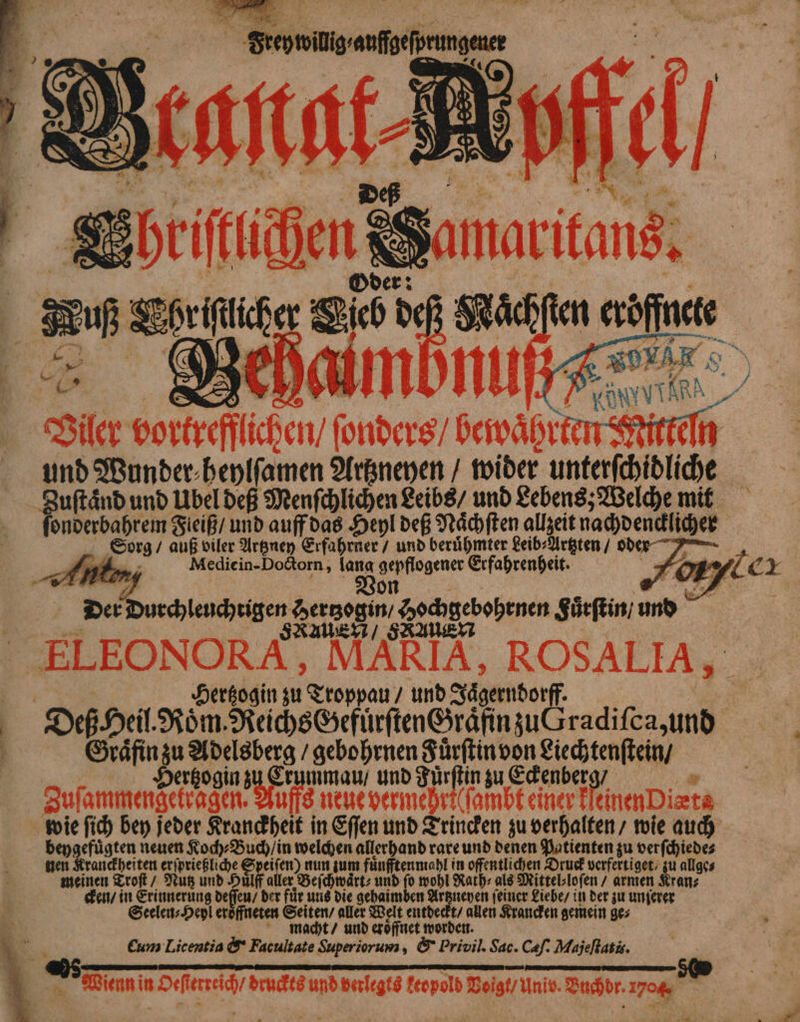 Freywillig-auffgesprungener
Granat-Apffel/
Deß
Christlichen Samaritans.
Oder:
Auß Christlicher Lieb deß Nächsten eröffnete
Gehaimbnuß
NOVÁK S.
KÖNYVTÁRA
Viler vortrefflichen/ sonders/ bewährten Mitteln
und Wunder-heylsamen Artzneyen / wider unterschidliche
Zuständ und Ubel deß Menschlichen Leibs/ und Lebens; Welche mit
sonderbahrem Fleiß/ und auff das Heyl deß Nächsten allzeit nachdencklicher
Sorg / auß viler Artzney Erfahrner / und berühmter Leib-Artzten / oder
Medicin-Doctorn, lang gepflogener Erfahrenheit.
Von
Der Durchleuchtigen Hertzogin/ Hochgebohrnen Fürstin/ und
FRAUEN/ FRAUEN
ELEONORA, MARIA, ROSALIA,
Hertzogin zu Troppau / und Jägerndorff.
Deß Heil. Röm. Reichs Gefürsten Gräfin zu Gradisca, und
Gräfin zu Adelsberg / gebohrnen Fürstin von Liechtenstein/
Hertzogin zu Crummau/ und Fürstin zu Eckenberg/
Zusammengetragen. Auffs neue vermehrt (sambt einer kleinen Diæta
wie sich bey jeder Kranckheit in Essen und Trincken zu verhalten / wie auch
beygefügten neuen Koch-Buch/ in welchen allerhand rare und denen Patienten zu verschiede-
nen Kranckheiten ersprießliche Speisen) nun zum fünfftenmahl in offentlichen Druck verfertiget, zu allge-
meinen Trost / Nutz und Hülff aller Beschwärt- und so wohl Rath- als Mittel-losen / armen Kran-
cken/ in Erinnerung dessen/ der für uns die gehaimben Artzneyen seiner Liebe/ in der zu unserer
Seelen-Heyl eröffneten Seiten/ aller Welt entdeckt/ allen Krancken gemein ge-
macht / und eröffnet worden.
Cum Licentia & Facultate Superiorum, & Privil. Sac. Cæs. Majestatis.
Wienn in Oesterreich/ druckts und verlegts Leopold Voigt/ Univ. Buchdr. 1704.